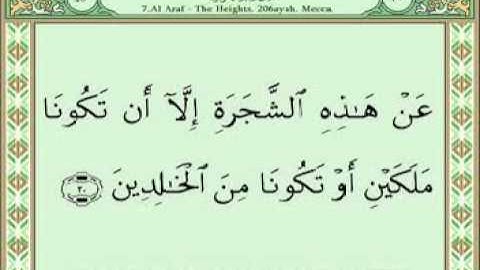 7.Al Araf - The Heights. 206ayah. Mecca.
عَنْ هَـٰذِهِ ٱلشَّجَرَةِ إِلَّآ أَن تَكُونَا
مَلَكَيْنِ أَوْ تَكُونَا مِنَ ٱلْخَـٰلِدِينَ ٢٠